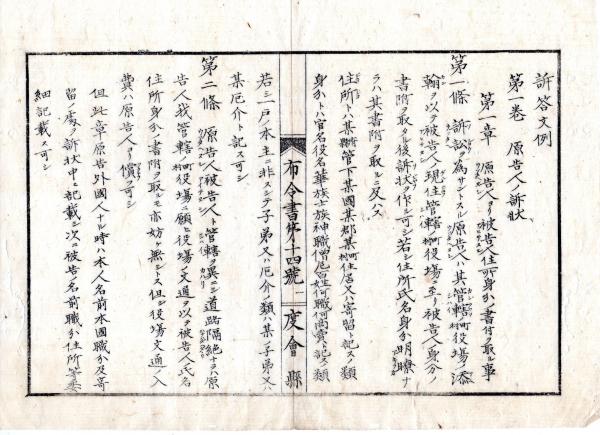 訴答文例
第一卷 原告人ノ訴狀
第一章 原告人ヨリ被告人ノ住所身分ノ書付ヲ取ル事
第一條 訴訟ヲ為サントスル原告人ハ其管轄町村役場ノ添
翰ヲ以テ被告人現住管轄町村役場ニ至リ被告人身分ノ
書附ヲ取タル後訴狀ヲ作ル可シ若シ住所氏名身分明瞭ナ
ラハ其書附ヲ取ルニ及ハス
住所トハ某府縣管下某國某郡某町村住居又ハ寄留ト記スノ類
身分トハ官名役名華族士族神職僧尼百姓何職何商賣ト記スノ類
若シ一戸ノ本主ニ非スシテ子弟又ハ厄介ノ類ハ某ノ子弟又ハ
某厄介ト記ス可シ
第二條 原告人被告人ト管轄ヲ異ニシ道路隔絶ナラハ原
告人我管轄町村役場ニ願ヒ役場ノ文通ヲ以テ被告人氏名
住所身分ノ書附ヲ取ルモ亦妨ケ無シトス但シ役場文通ノ入
費ハ原告人ヨリ償フ可シ
但此章原告外國人ナル時ハ本人名前本國職分及寄
留ノ處ヲ訴狀中ニ記載シ次ニ被告ノ名前職分住所等委
細記載ス可シ
布令書第十四號
度會縣